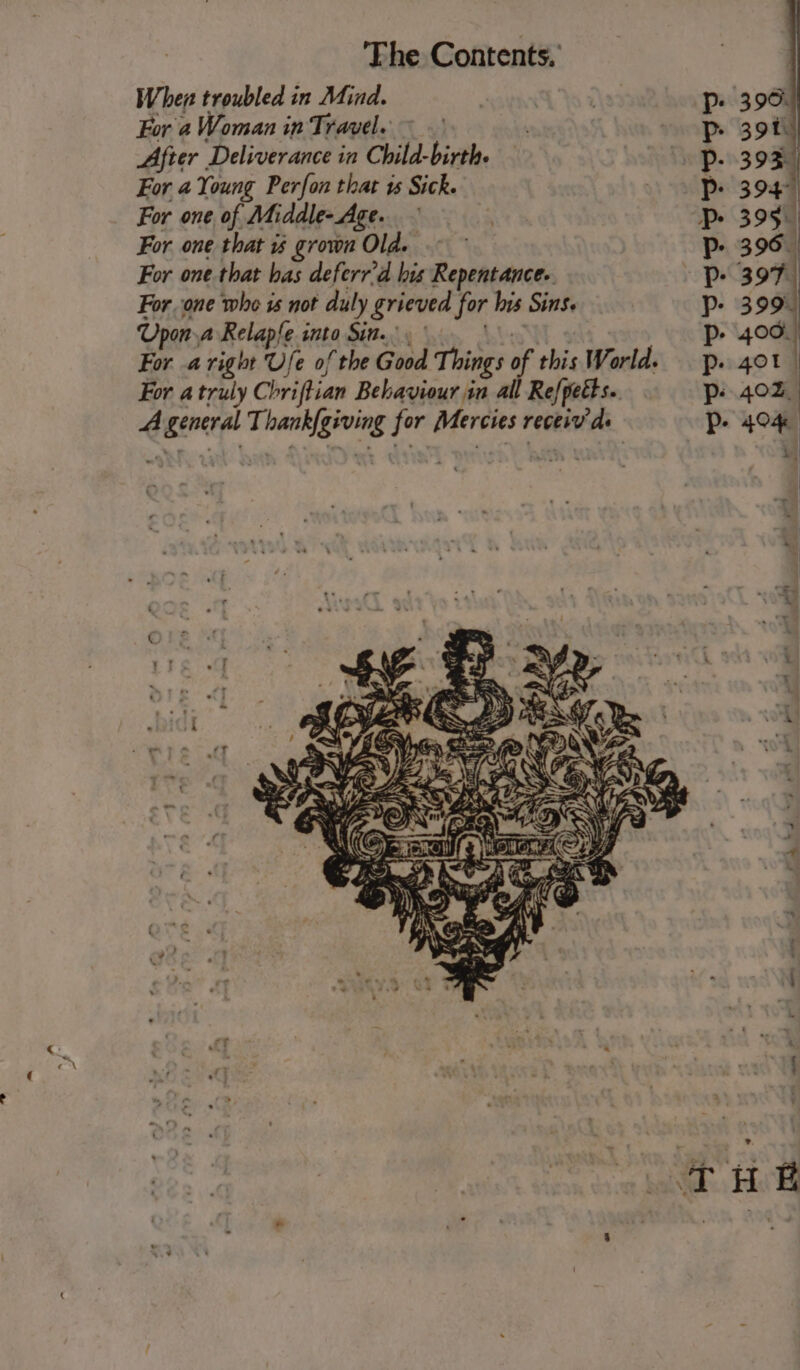 The Contents.
When troubled in Mind. p. 390.
For a Woman in Travel. p. 391.
After Deliverance in Child-birth. p. 393.
For a Young Perſon that is Sick. p. 394.
For one of Middle-Age. p. 395.
For one that is grown Old. p. 396.
For one that has deferr'd his Repentance. p. 397.
For one who is not duly grieved for his Sins. p. 399.
Upon a Relapſe into Sin. p. 400.
For a right Uſe of the Good Things of this World. p. 401
For a truly Chriſtian Behaviour in all Reſpects. p. 402.
A general Thankſgiving for Mercies receiv'd. p. 404
THE